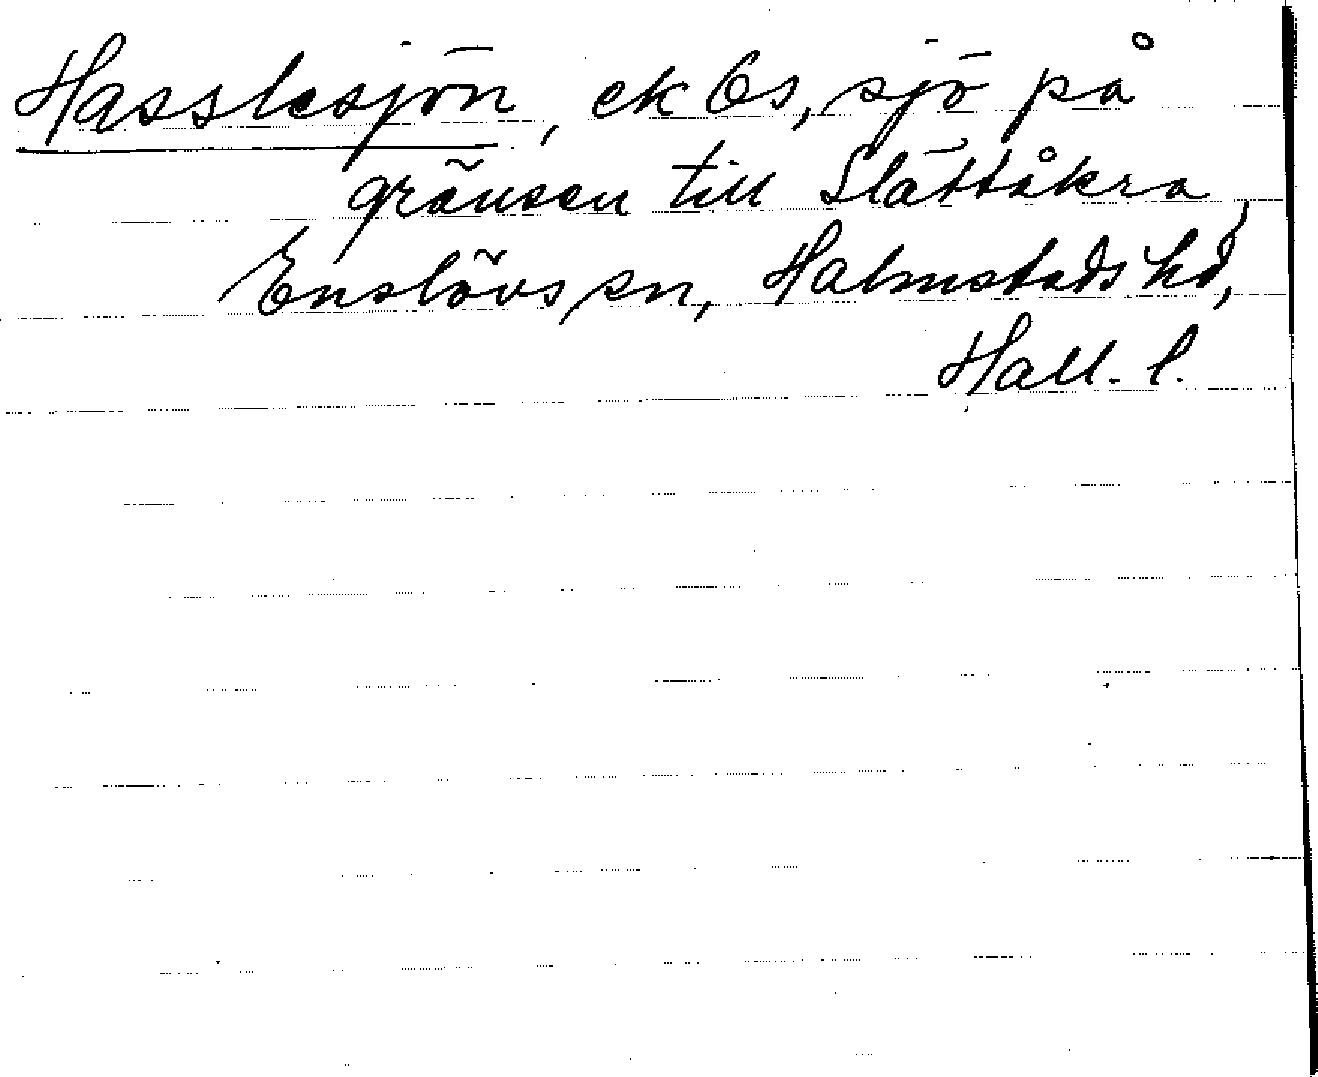 Hasslesjön, ek 6s, sjö på
gränsen till Slättåkra,
Enslövs sn, Halmstads hd,
Hall. l.